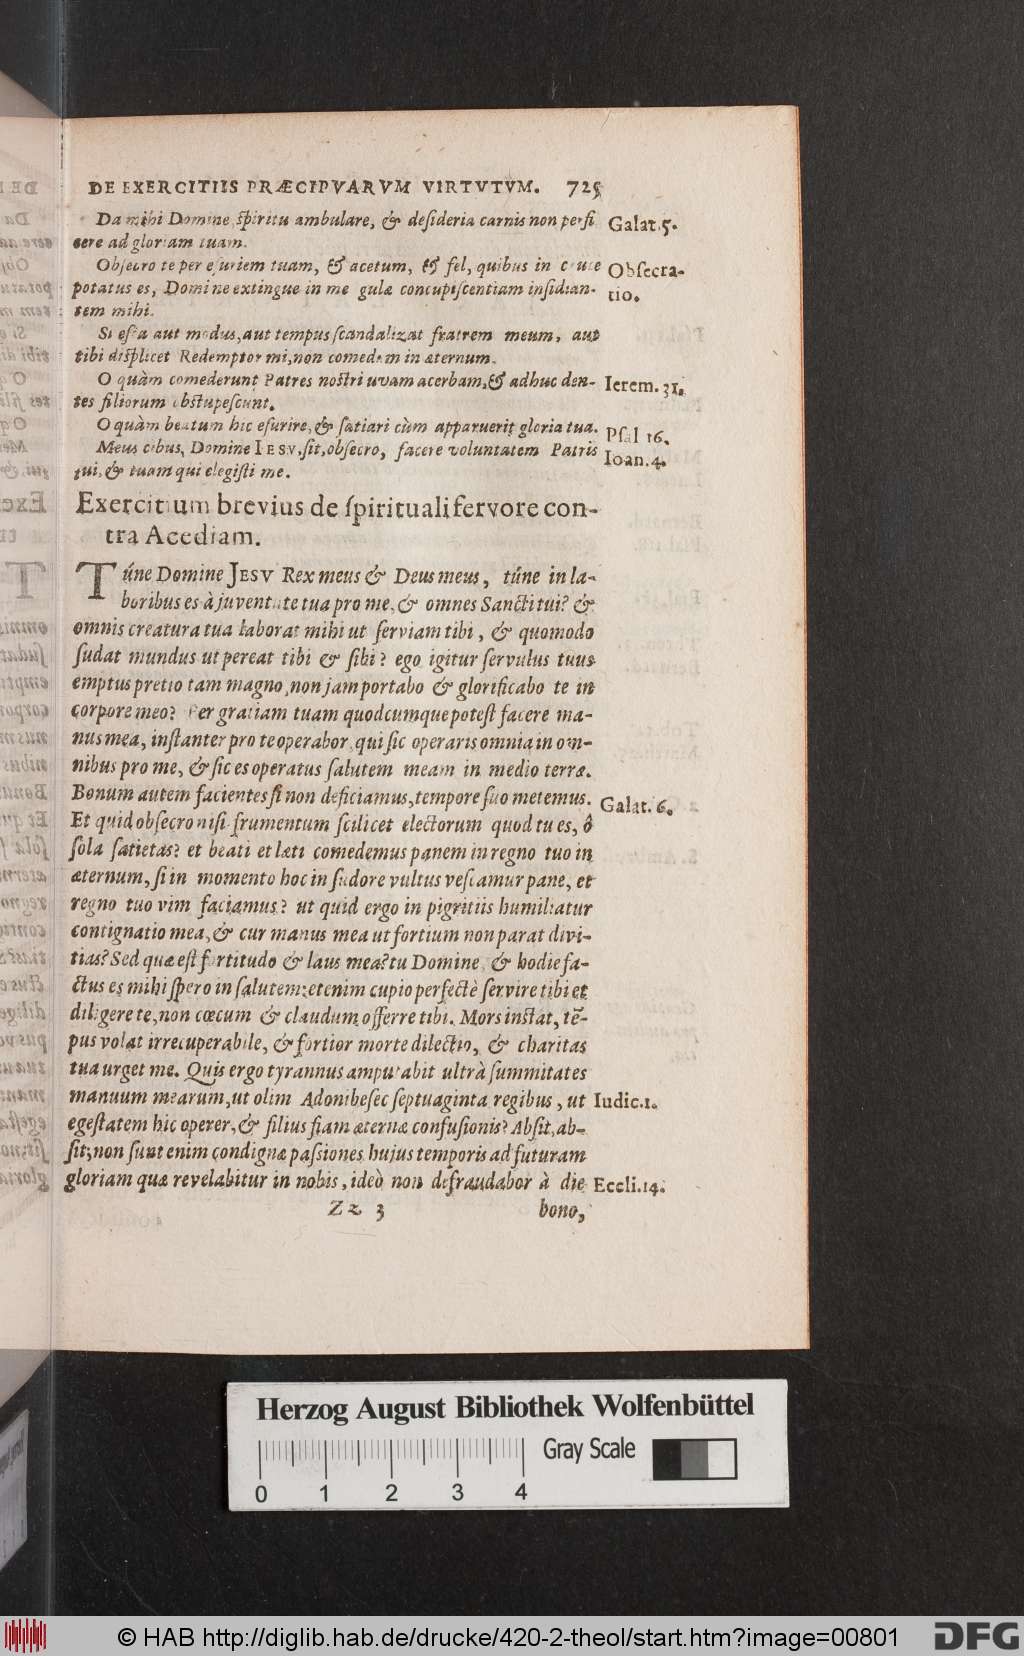 DE EXERCITIIS PRÆCIPVARVM VIRTVTVM. 725
Da mihi Domine spiritu ambulare, & desideria carnis non perfi Galat. 5.
cere ad gloriam tuam.
Obsecro te per esuriem tuam, & acetum, & fel, quibus in cruce Obsecra-
potatus es, Domine extingue in me gulæ concupiscentiam insidian- tio.
tem mihi.
Si esca aut modus, aut tempus scandalizat fratrem meum, aut
tibi displicet Redemptor mi, non comedam in æternum.
O quàm comederunt Patres nostri uvam acerbam, & adhuc den- Ierem. 31.
tes filiorum obstupescunt.
O quàm beatum hic esurire, & satiari cùm apparuerit gloria tua. Psal 16.
Meus cibus, Domine IESV, sit, obsecro, facere voluntatem Patris Ioan. 4.
tui, & tuam qui elegisti me.
Exercitium brevius de spirituali fervore con-
tra Acediam.
Túne Domine JESV Rex meus & Deus meus, túne in la-
boribus es à juventute tua pro me, & omnes Sancti tui? &
omnis creatura tua laborat mihi ut serviam tibi, & quomodo
sudat mundus ut pereat tibi & sibi? ego igitur servulus tuus
emptus pretio tam magno, non jam portabo & glorificabo te in
corpore meo? Per gratiam tuam quodcumque potest facere ma-
nus mea, instanter pro te operabor, qui sic operaris omnia in om-
nibus pro me, & sic es operatus salutem meam in medio terræ.
Bonum autem facientes si non deficiamus, tempore suo metemus. Galat. 6.
Et quid obsecro nisi frumentum scilicet electorum quod tu es, ô
sola satietas? et beati et læti comedemus panem in regno tuo in
æternum, si in momento hoc in sudore vultus vescamur pane, et
regno tuo vim faciamus? ut quid ergo in pigritiis humiliatur
contignatio mea, & cur manus mea ut fortium non parat divi-
tias? Sed quæ est fortitudo & laus mea? tu Domine, & hodie fa-
ctus es mihi spero in salutem: etenim cupio perfectè servire tibi et
diligere te, non cœcum & claudum offerre tibi. Mors instat, tē-
pus volat irrecuperabile, & fortior morte dilectio, & charitas
tua urget me. Quis ergo tyrannus amputabit ultrà summitates
manuum mearum, ut olim Adonibesec septuaginta regibus, ut Iudic. 1.
egestatem hic operer, & filius fiam æternæ confusionis? Absit, ab-
sit; non sunt enim condignæ passiones hujus temporis ad futuram
gloriam quæ revelabitur in nobis, ideò non defraudabor à die Eccli. 14.
Zz 3 bono,
Herzog August Bibliothek Wolfenbüttel
Gray Scale
0 1 2 3 4
© HAB http://diglib.hab.de/drucke/420-2-theol/start.htm?image=00801 DFG